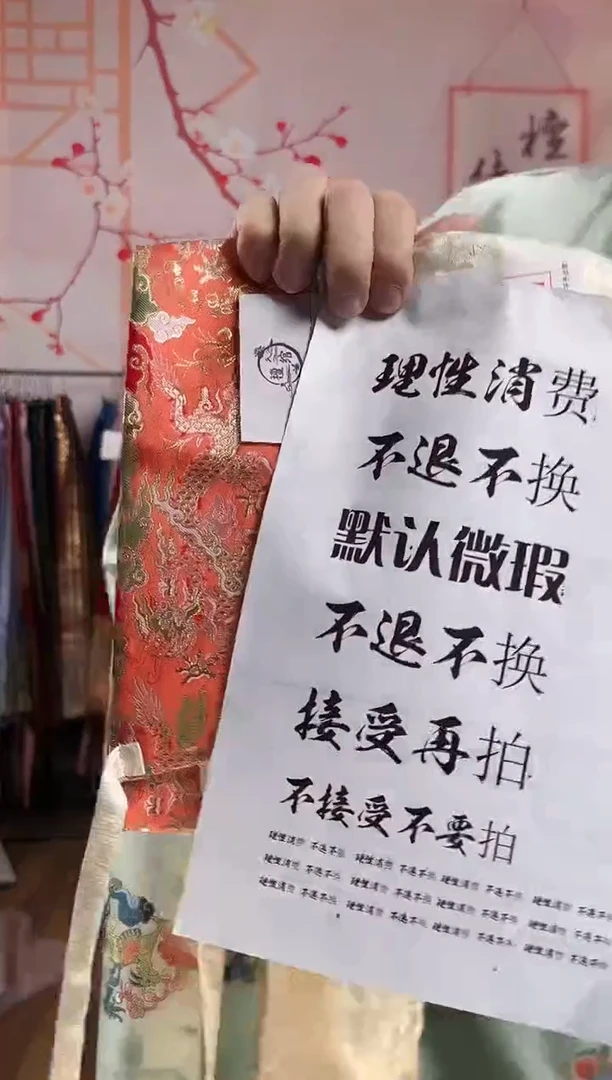 理性消费
不退不换
默认微瑕
不退不换
接受再拍
不接受不要拍
理性消费 不退不换 理性消费 不退不换 理性消费 不退不换 理性消费 不退不换
理性消费 不退不换 理性消费 不退不换 理性消费 不退不换 理性消费 不退不换
理性消费 不退不换 理性消费 不退不换 理性消费 不退不换 理性消费 不退不换